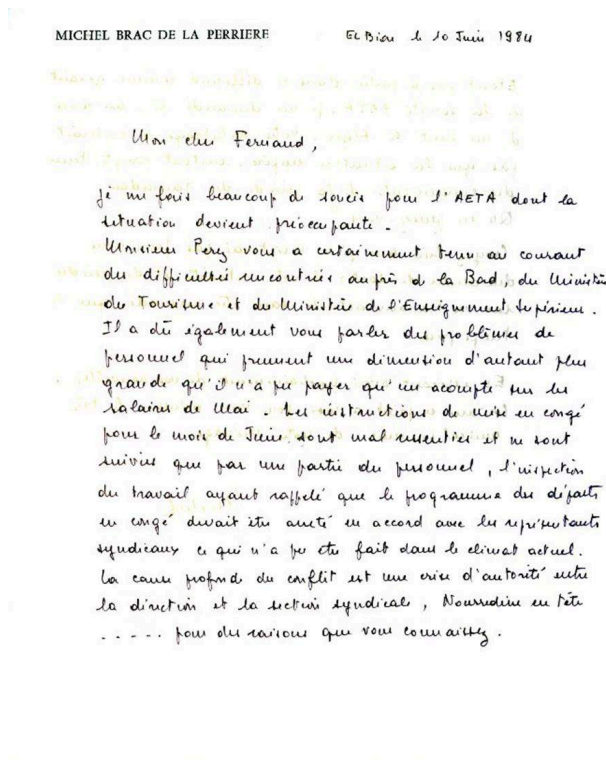 MICHEL BRAC DE LA PERRIERE
El Biar le 10 Juin 1984
Mon cher Fernand,
je me fais beaucoup de soucis pour l'AETA dont la
situation devient préoccupante.
Monsieur Perez vous a certainement tenu au courant
des difficultés rencontrées auprès de la Bad, du Ministère
du Tourisme et du Ministère de l'Enseignement Supérieur.
Il a dû également vous parler des problèmes de
personnel qui prennent une dimension d'autant plus
grande qu'il n'a pu payer qu'un acompte sur les
salaires de Mai. Les instructions de mise en congé
pour le mois de Juin sont mal ressenties et ne sont
suivies que par une partie du personnel, l'inspection
du travail ayant rappelé que le programme des départs
en congé devait être arrêté en accord avec les représentants
syndicaux ce qui n'a pu être fait dans le climat actuel.
La cause profonde du conflit est une crise d'autorité entre
la direction et la section syndicale, Nourredine en tête
..... pour des raisons que vous connaissez.